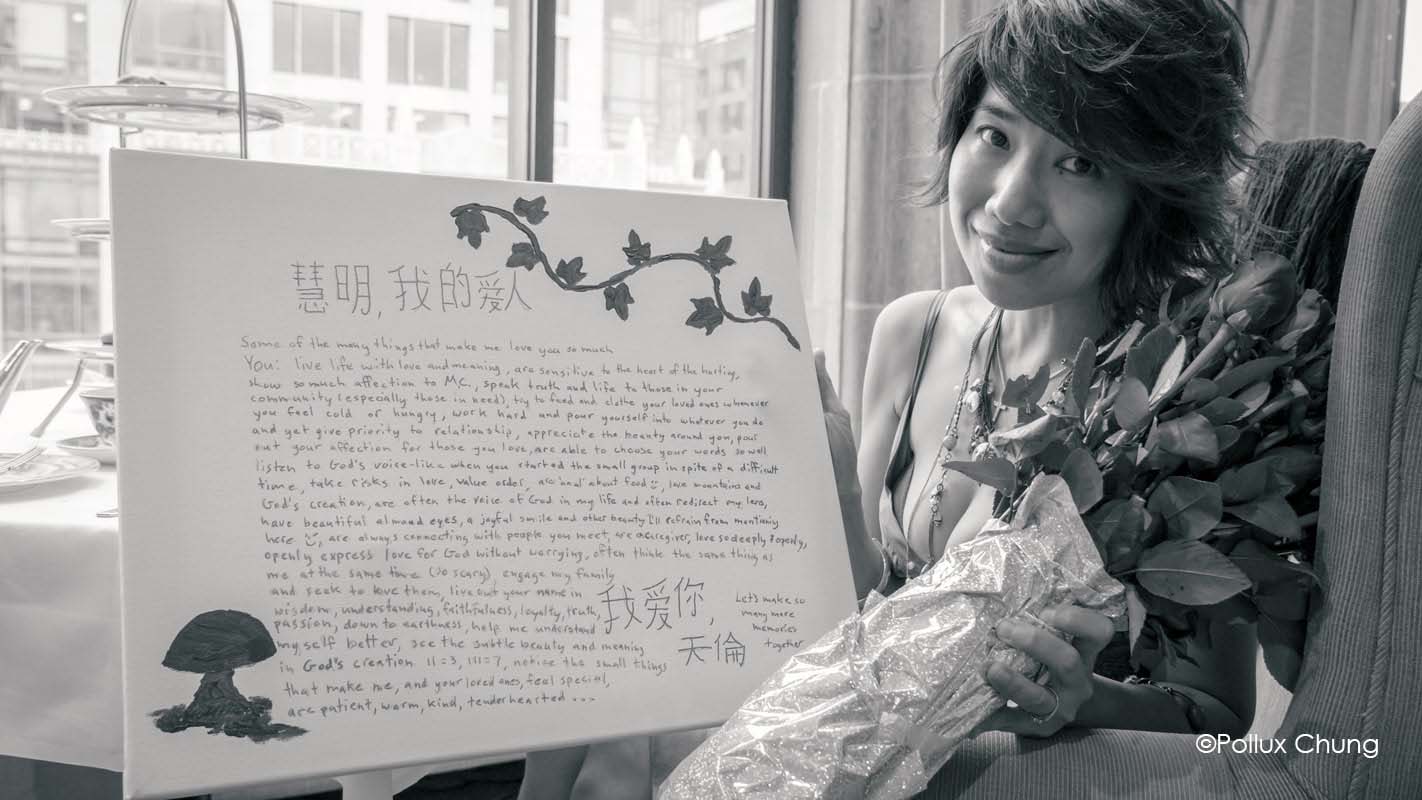 慧明, 我的爱人
Some of the many things that make me love you so much
You: live life with love and meaning, are sensitive to the heart of the hurting,
show so much affection to MC, speak truth and life to those in your
community (especially those in need), try to feed and clothe your loved ones whenever
you feel cold or hungry, work hard and pour yourself into whatever you do
and yet give priority to relationship, appreciate the beauty around you, pour
out your affection for those you love, are able to choose your words so well
listen to God's voice-like when you started the small group in spite of a difficult
time, take risks in love, value order, are about food, love mountains and
God's creation, are often the voice of God in my life and often redirect my
have beautiful almond eyes, a joyful smile and other beauty I'll refrain from mentioning
here, are always connecting with people you meet, are a caregiver, love so deeply & openly,
openly express love for God without worrying, often think the same thing as
me at the same time (so scary), engage my family
and seek to love them, live out your name in
wisdom, understanding, faithfulness, loyalty, truth,
passion, down to earthness, help me understand
myself better, see the subtle beauty and meaning
in God's creation 11=3, 111=7, notice the small things
that make me, and your loved ones, feel special,
are patient, warm, kind, tenderhearted ...
我爱你,
天倫
Let's make so
many more
memories
together
©Pollux Chung